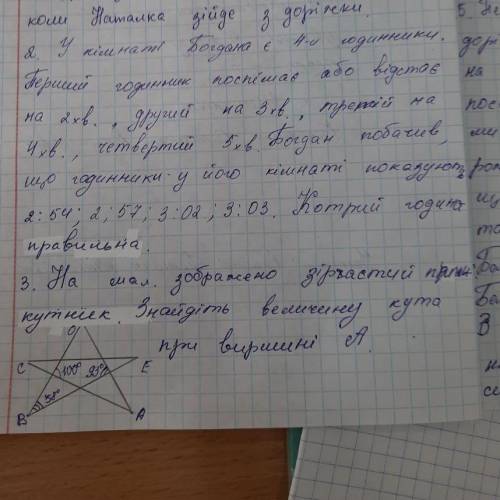 коли Наталка зійде з доріжки.
2. У кімнаті Богдана є 4-и годинники.
Перший годинник поспішає або відстає
на 2хв., другий на 3хв., третій на
4хв., четвертий 5хв. Богдан побачив,
що годинники у його кімнаті показують
2:54; 2;57; 3:02; 3:03. Котрий година
правильна.
3. На мал. зображено зірчастий
кутник. Знайдіть величину кута
при вершині А.
C 100° 93° E
B 58° A
5.
дорі
на
пос
ми
що
то
Ба
Бо
В